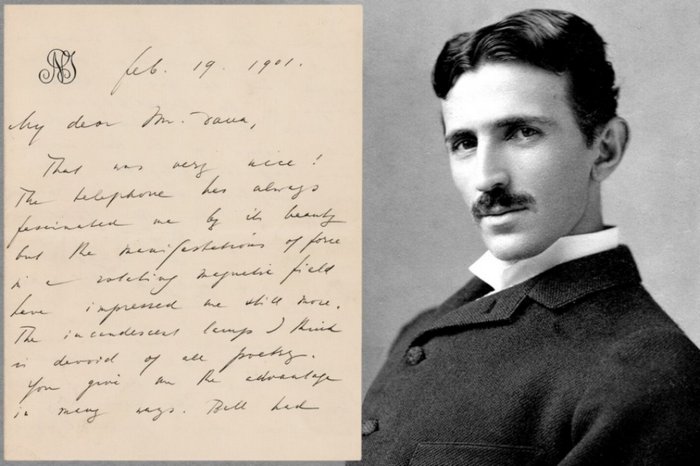 NT
Feb. 19. 1901.
My dear Mr. Dana,
That was very nice!
The telephone has always
fascinated me by its beauty
but the manifestations of force
in a rotating magnetic field
have impressed me still more.
The incandescent lamps I think
is devoid of all poetry.
You give me the advantage
in many ways. Bell had